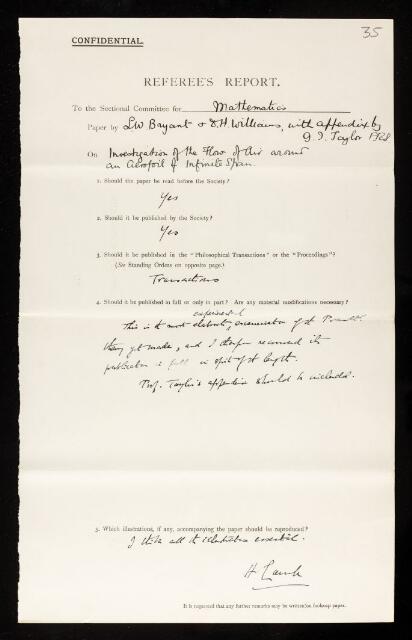 35
CONFIDENTIAL
REFEREE'S REPORT.
To the Sectional Committee for Mathematics
Paper by L W Bryant & D. H. Williams, with appendix by
G. I. Taylor 1924
On Investigation of the Flow of Air around
an Aerofoil of Infinite Span.
1. Should the paper be read before the Society?
Yes
2. Should it be published by the Society?
Yes
3. Should it be published in the "Philosophical Transactions" or the "Proceedings"?
(See Standing Orders on opposite page.)
Transactions
4. Should it be published in full or only in part? Are any material modifications necessary?
experimental
This is the most elaborate examination of the Prandtl
theory yet made, and I therefore recommend its
publication in full in spite of its length.
Prof. Taylor's appendix should be included.
5. Which illustrations, if any, accompanying the paper should be reproduced?
I think all the illustrations essential.
H Lamb
It is requested that any further remarks may be written on foolscap paper.